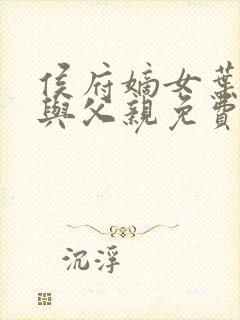 侯府嫡女葉
與父親免費
沉浮